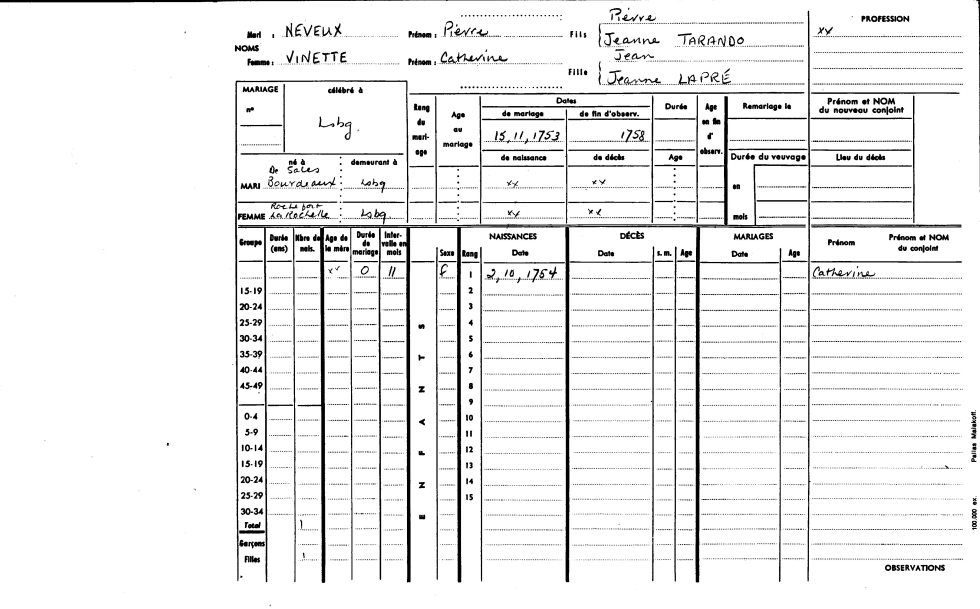 Pièvre PROFESSION
Mari : NEVEUX Prénom : Pièrre Fils Jeanne TARANDO xx
NOMS Jean
Femme : VINETTE Prénom : Catherine Fille Jeanne LAPRÉ
MARIAGE célébré à
n° Lsbg.
Rang du mari- age Age au mariage Dates Durée Age en fin d' observ. Remariage le Prénom et NOM du nouveau conjoint
de mariage de fin d'observ.
15, 11, 1753 1758
né à demeurant à de naissance de décès Age Durée du veuvage Lieu du décès
De Sales
MARI Bourdeaux Lsbg xx xx en
Rochefort
FEMME La Rochelle Lsbg. xx xx mois
Groupe Durée (ans) Nbre de nais. Age de la mère Durée de mariage Inter- valle en mois Sexe Rang NAISSANCES Date DÉCÈS Date s. m. Age MARIAGES Date Age Prénom Prénom et NOM du conjoint
xx 0 11 f 1 2, 10, 1754 Catherine
15-19 2
20-24 3
25-29 4
30-34 5
35-39 6
40-44 7
45-49 8
9
0-4 10
5-9 11
10-14 12
15-19 13
20-24 14
25-29 15
30-34
E N F A N T S
Total 1
Garçons
Filles 1
OBSERVATIONS
100.000 ex. Pallas Malakoff.